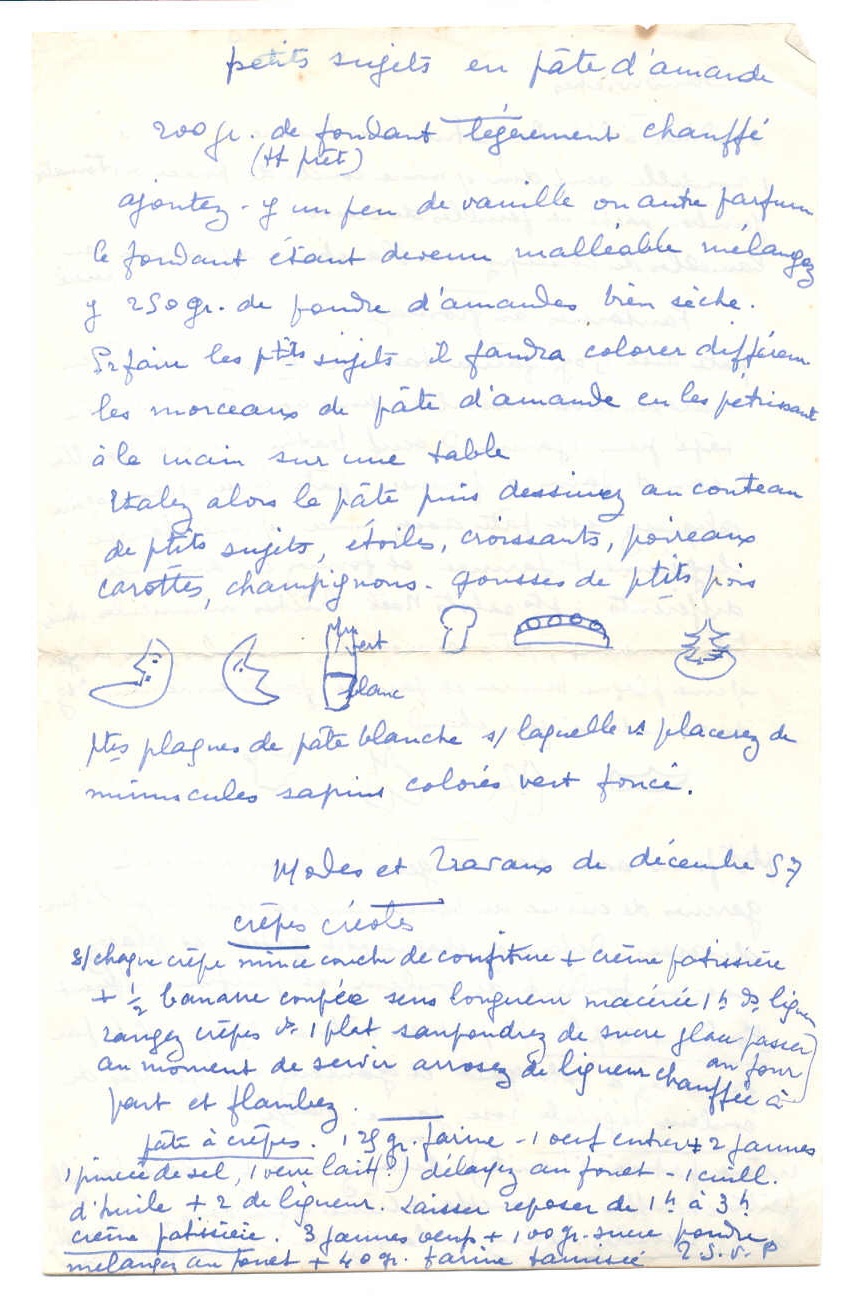 petits sujets en pâte d'amande
200 gr. de fondant légèrement chauffé
(tt prêt)
ajoutez-y un peu de vanille ou autre parfum
le fondant étant devenu malléable mélangez
y 250 gr. de poudre d'amandes bien sèche.
Pr faire les ptits sujets il faudra colorer différem
les morceaux de pâte d'amande en les pétrissant
à la main sur une table
Etalez alors la pâte puis dessinez au couteau
de ptits sujets, étoiles, croissants, poireaux
carottes, champignons - gousses de ptits pois
vert
blanc
ptes plaques de pâte blanche s/ laquelle vs placerez de
minuscules sapins colorés vert foncé.
Modes et Travaux de décembre 57
crêpes créoles
s/chaque crêpe mince couche de confiture + crème patissière
+ 1/2 banane coupée sens longueur macérée 1h ds liqueur
rangez crêpes ds 1 plat saupoudrez de sucre glace passer
au four
au moment de servir arrosez de liqueur chauffée à
part et flambez.
pâte à crêpes. 125 gr. farine - 1 oeuf entier + 2 jaunes
1 pincée de sel, 1 verre lait (?) délayez au fouet - 1 cuill.
d'huile + 2 de liqueur. Laisser reposer de 1h à 3h
crème patissière. 3 jaunes oeufs + 100 gr. sucre poudre
mélangez au fouet + 40 gr. farine tamisée T.S.V.P